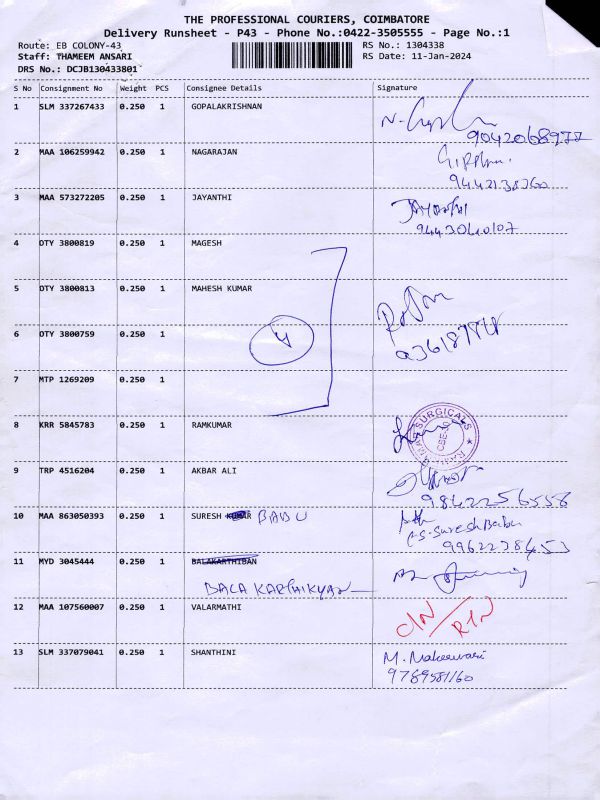 THE PROFESSIONAL COURIERS, COIMBATORE
Delivery Runsheet - P43 - Phone No.:0422-3505555 - Page No.:1
Route: EB COLONY-43 RS No.: 1304338
Staff: THAMEEM ANSARI RS Date: 11-Jan-2024
DRS No.: DCJB130433801
S No Consignment No Weight PCS Consignee Details Signature
1 SLM 337267433 0.250 1 GOPALAKRISHNAN
2 MAA 106259942 0.250 1 NAGARAJAN
3 MAA 573272205 0.250 1 JAYANTHI JAYANTHI
4 DTY 3800819 0.250 1 MAGESH
5 DTY 3800813 0.250 1 MAHESH KUMAR
6 DTY 3800759 0.250 1 A
7 MTP 1269209 0.250 1
8 KRR 5845783 0.250 1 RAMKUMAR SURGICALS CBE
9 TRP 4516204 0.250 1 AKBAR ALI
9842256558
10 MAA 863050393 0.250 1 SURESH KUMAR BABU
G.S. Suresh Babu
9962238453
11 MYD 3045444 0.250 1 BALAKARTHIBAN
BALA KARTHIKYAN
12 MAA 107560007 0.250 1 VALARMATHI D/N/RTN
13 SLM 337079041 0.250 1 SHANTHINI M. Makeswari
9789581160